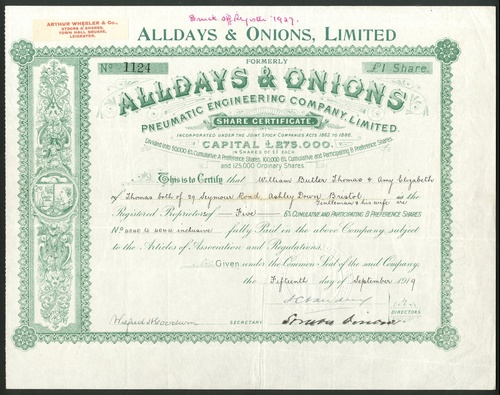 ARTHUR WHEELER & Co.,
STOCKS & SHARES,
TOWN HALL SQUARE,
LEICESTER.
Struck off Register 1927.
ALLDAYS & ONIONS, LIMITED
FORMERLY
No 1124
£1 Share.
ALLDAYS & ONIONS
PNEUMATIC ENGINEERING COMPANY, LIMITED.
SHARE CERTIFICATE.
INCORPORATED UNDER THE JOINT STOCK COMPANIES ACTS 1862 TO 1886.
CAPITAL £275,000.
IN SHARES OF £1 EACH
Divided into 50,000 6% Cumulative A Preference Shares, 100,000 6% Cumulative and Participating B Preference Shares
and 125,000 Ordinary Shares.
This is to Certify that William Butler Thomas & Amy Elizabeth
Thomas both of 29 Seymour Road, Ashley Down, Bristol,
Gentleman & his wife are
of as the
Registered Proprietors of Five 6% CUMULATIVE AND PARTICIPATING B PREFERENCE SHARES
No inclusive fully Paid in the above Company subject
to the Articles of Association and Regulations.
Given under the Common Seal of the said Company,
the Fifteenth day of September 1919
DIRECTORS
SECRETARY